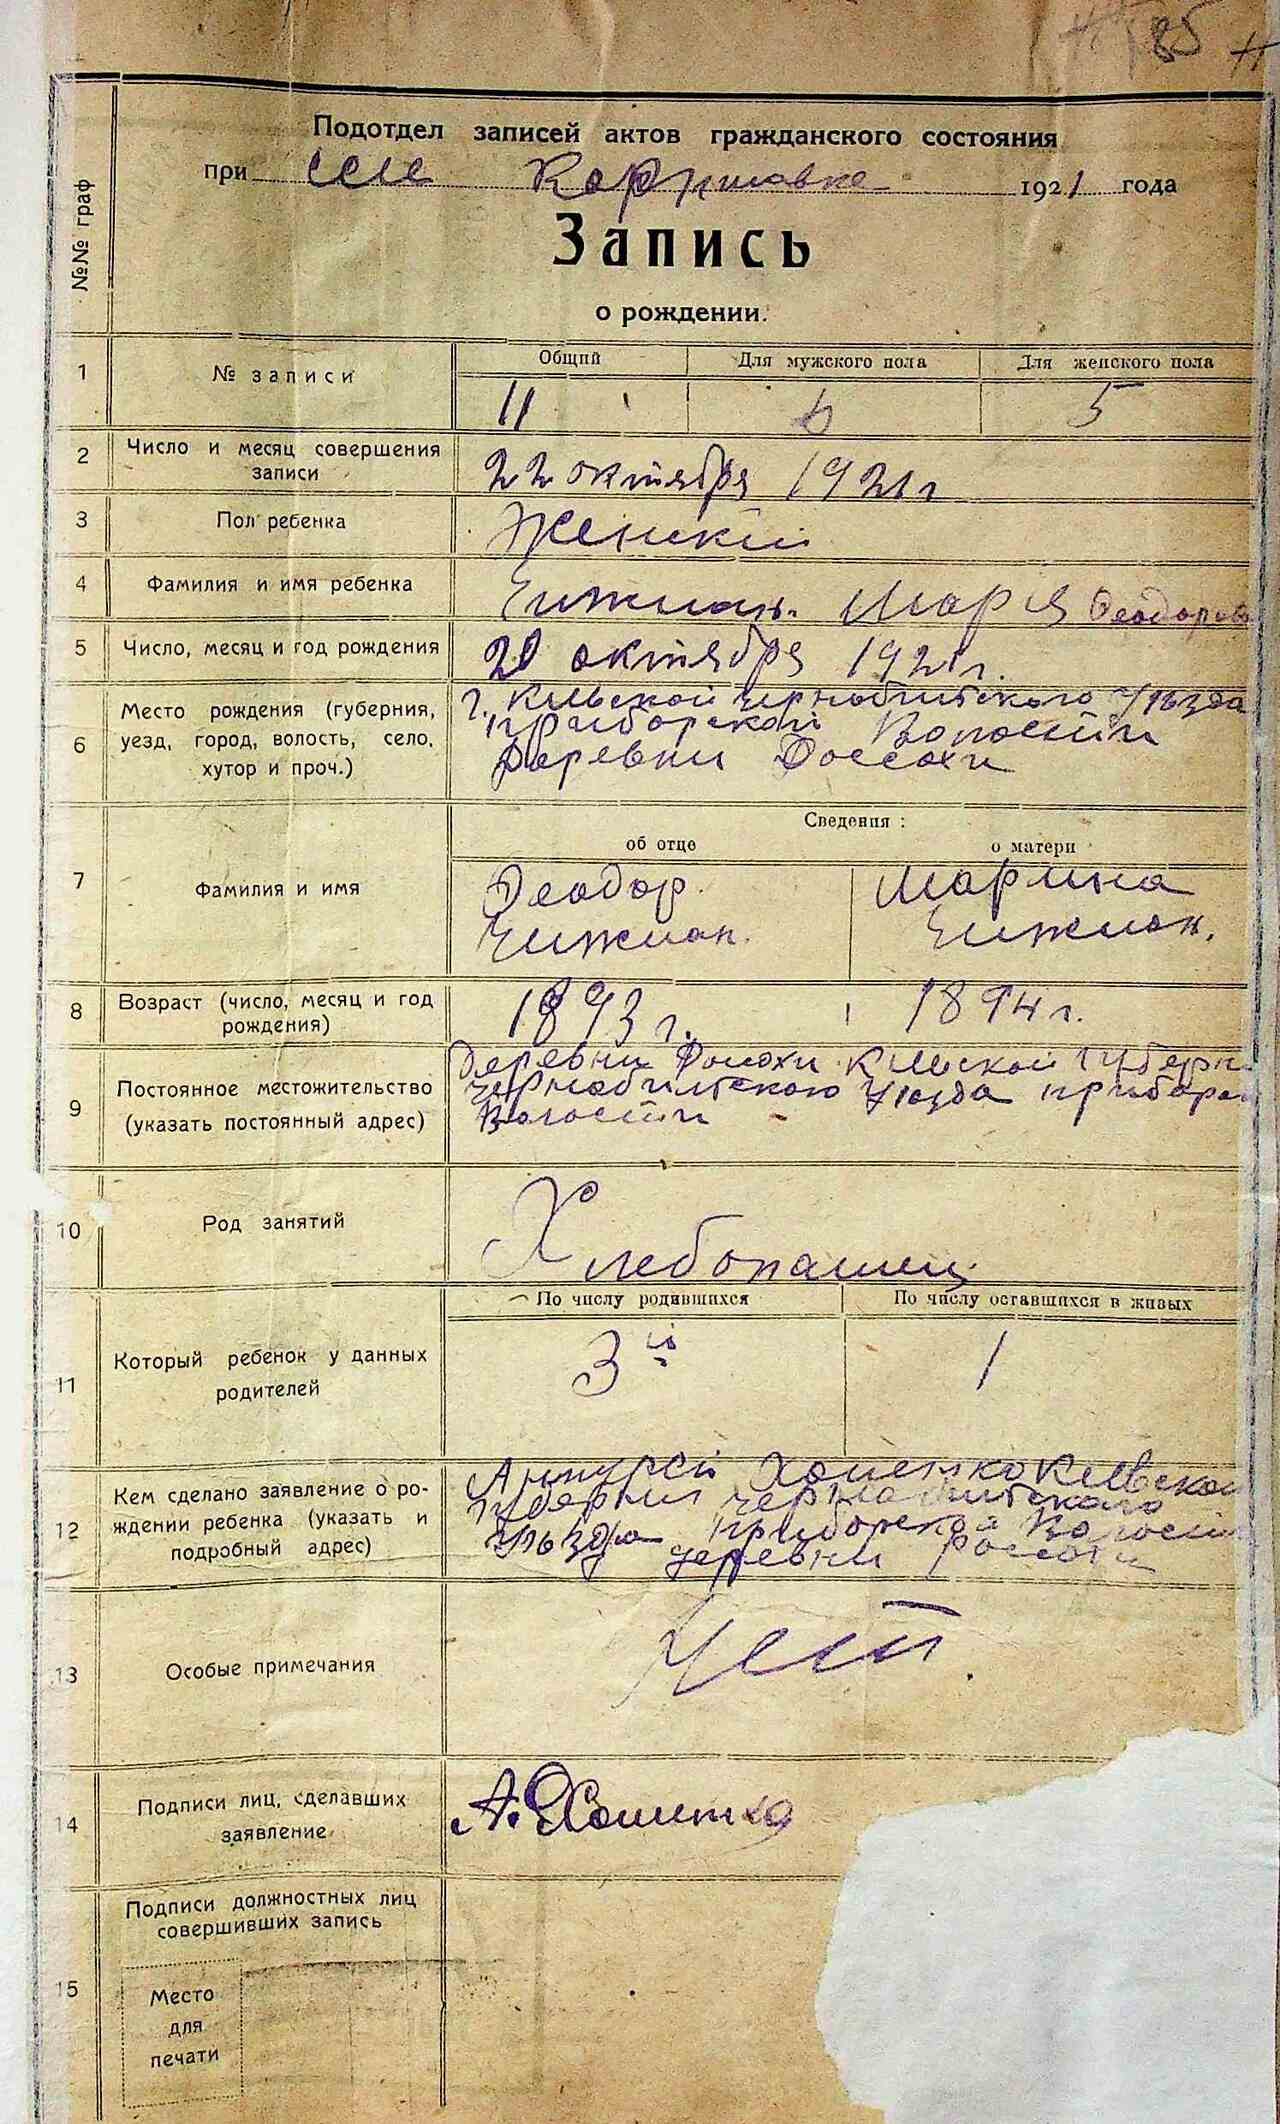 85
Подотдел записей актов гражданского состояния
при селе 1921 года
№№ граф
Запись
о рождении.
1 № записи Общий Для мужского пола Для женского пола
11 6 5
2 Число и месяц совершения записи
22 октября 1921 г
3 Пол ребенка
Женский
4 Фамилия и имя ребенка
Чижман. Мария Феодоров
5 Число, месяц и год рождения
20 октября 1921 г.
6 Место рождения (губерния, уезд, город, волость, село, хутор и проч.)
г. Киевской Чернобильского уѣзда
приборской Волости
Деревни Россохи
Сведения:
об отце о матери
7 Фамилия и имя
Феодор Марина
Чижман. Чижман.
8 Возраст (число, месяц и год рождения)
1893 г. 1894 г.
9 Постоянное местожительство (указать постоянный адрес)
Деревни Киевской Губерн
Чернобильского уѣзда
Волости
10 Род занятий
Хлебопашец
По числу родившихся По числу оставшихся в живых
11 Который ребенок у данных родителей
3й 1
12 Кем сделано заявление о рождении ребенка (указать и подробный адрес)
Киевской
губернии Чернобильского
Уѣзда приборской Волости
деревни Россохи
13 Особые примечания
Нет.
14 Подписи лиц, сделавших заявление
15 Подписи должностных лиц совершивших запись
Место
для
печати